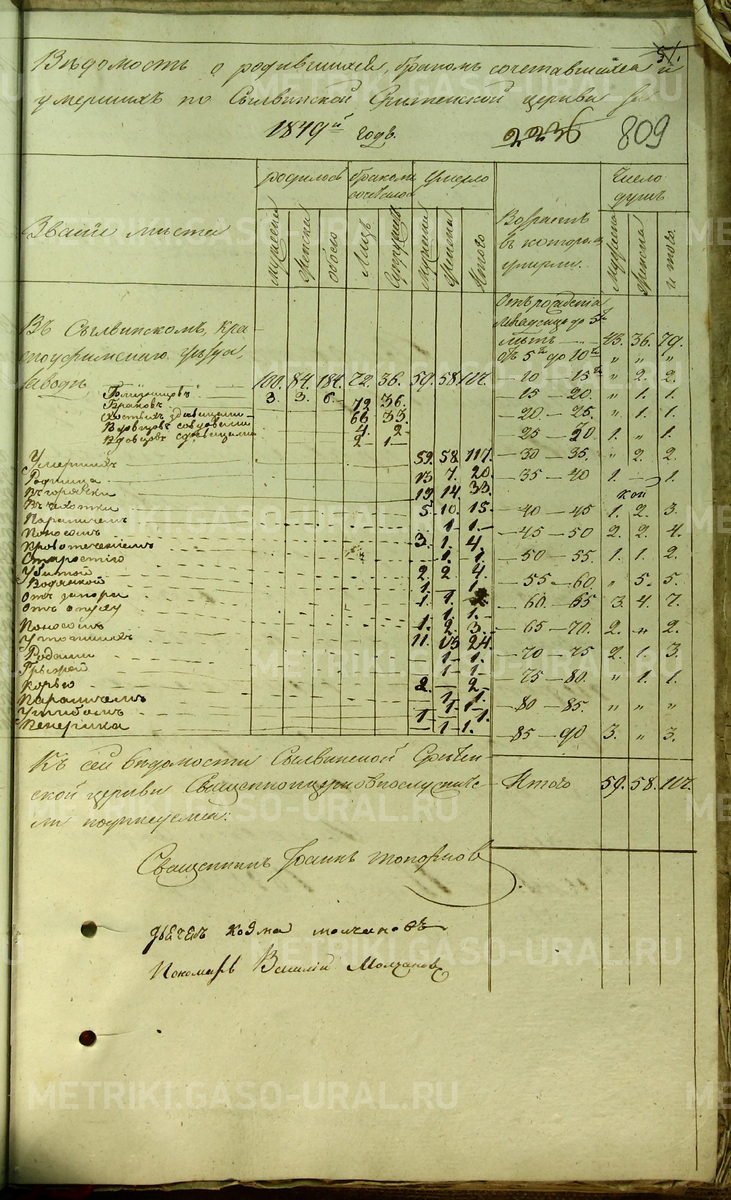 51.
Вѣдомость о родившихся, бракомъ сочетавшихся и
умершихъ по Сылвинской Срѣтенской церкви за
1849й годъ.
2236 809
Званіе мѣста
родилось
мужеска
женска
обоего
бракомъ сочеталось
Лицъ
Супруговъ
умерло
Мужска
Женска
Итого
Возрастъ
въ которомъ
умерли.
Число
душъ
Мужеска
Женска
итого.
Въ Сылвинскомъ, Кра-
сноуфимскаго уѣзда,
заводѣ 100. 84. 184. 72. 36. 59. 58. 117.
Близнецовъ 3. 3. 6.
Браковъ 72 36.
Холостыхъ съ дѣвицами 66 33.
Вдовцовъ со вдовами 4. 2
Вдовцовъ съ дѣвицами 2 1
Умершихъ 59. 58. 117.
Родимца 13 7. 20.
Въ горячки 19. 14. 33.
Въ чахотки 5. 10. 15.
Параличемъ 1 1.
Поносомъ 3. 1. 4.
Кровотеченіемъ 1. 1.
Старостію 2 2 4.
Убитой 1. 1.
Водянкой 1. 1. 2
Отъ запора 1. 1.
Отъ опуху 1. 2 3.
Поносомъ 11. 13 24.
Утопшихъ 1 1.
Родами 1 1.
Грыжей 2. 2.
Корью 1 1.
Параличемъ 1 1.
Ушибомъ 1 1.
1 1.
Отъ рожденія
до 5ти
лѣтъ 43. 36. 79.
Отъ 5ти до 10ти „ „ „
10 — 15ти „ 2. 2.
15 20. „ 1. 1.
20 — 25. „ 1. 1.
25 — 30 1. „ 1.
30 — 35. „ 2. 2.
35 — 40 1. — 1.
40 — 45 1. 2. 3.
45 — 50 2. 2. 4.
50 — 55. 1. 1. 2.
55 — 60 „ 5. 5.
60. — 65 3. 4. 7.
65 — 70. 2. „ 2.
70 — 75 2. 1. 3.
75 — 80. „ 1. 1.
80 — 85. „ „ „
85 — 90 3. „ 3.
Итого 59. 58. 117.
Къ сей вѣдомости Сылвинской Срѣтен-
ской церкви Священноцерковнослужите-
ли подписуемся:
Священникъ Іоаннъ Топорковъ
Дьячекъ Козма Молчановъ
Пономарь Василій Молчановъ
METRIKI.GASO-URAL.RU